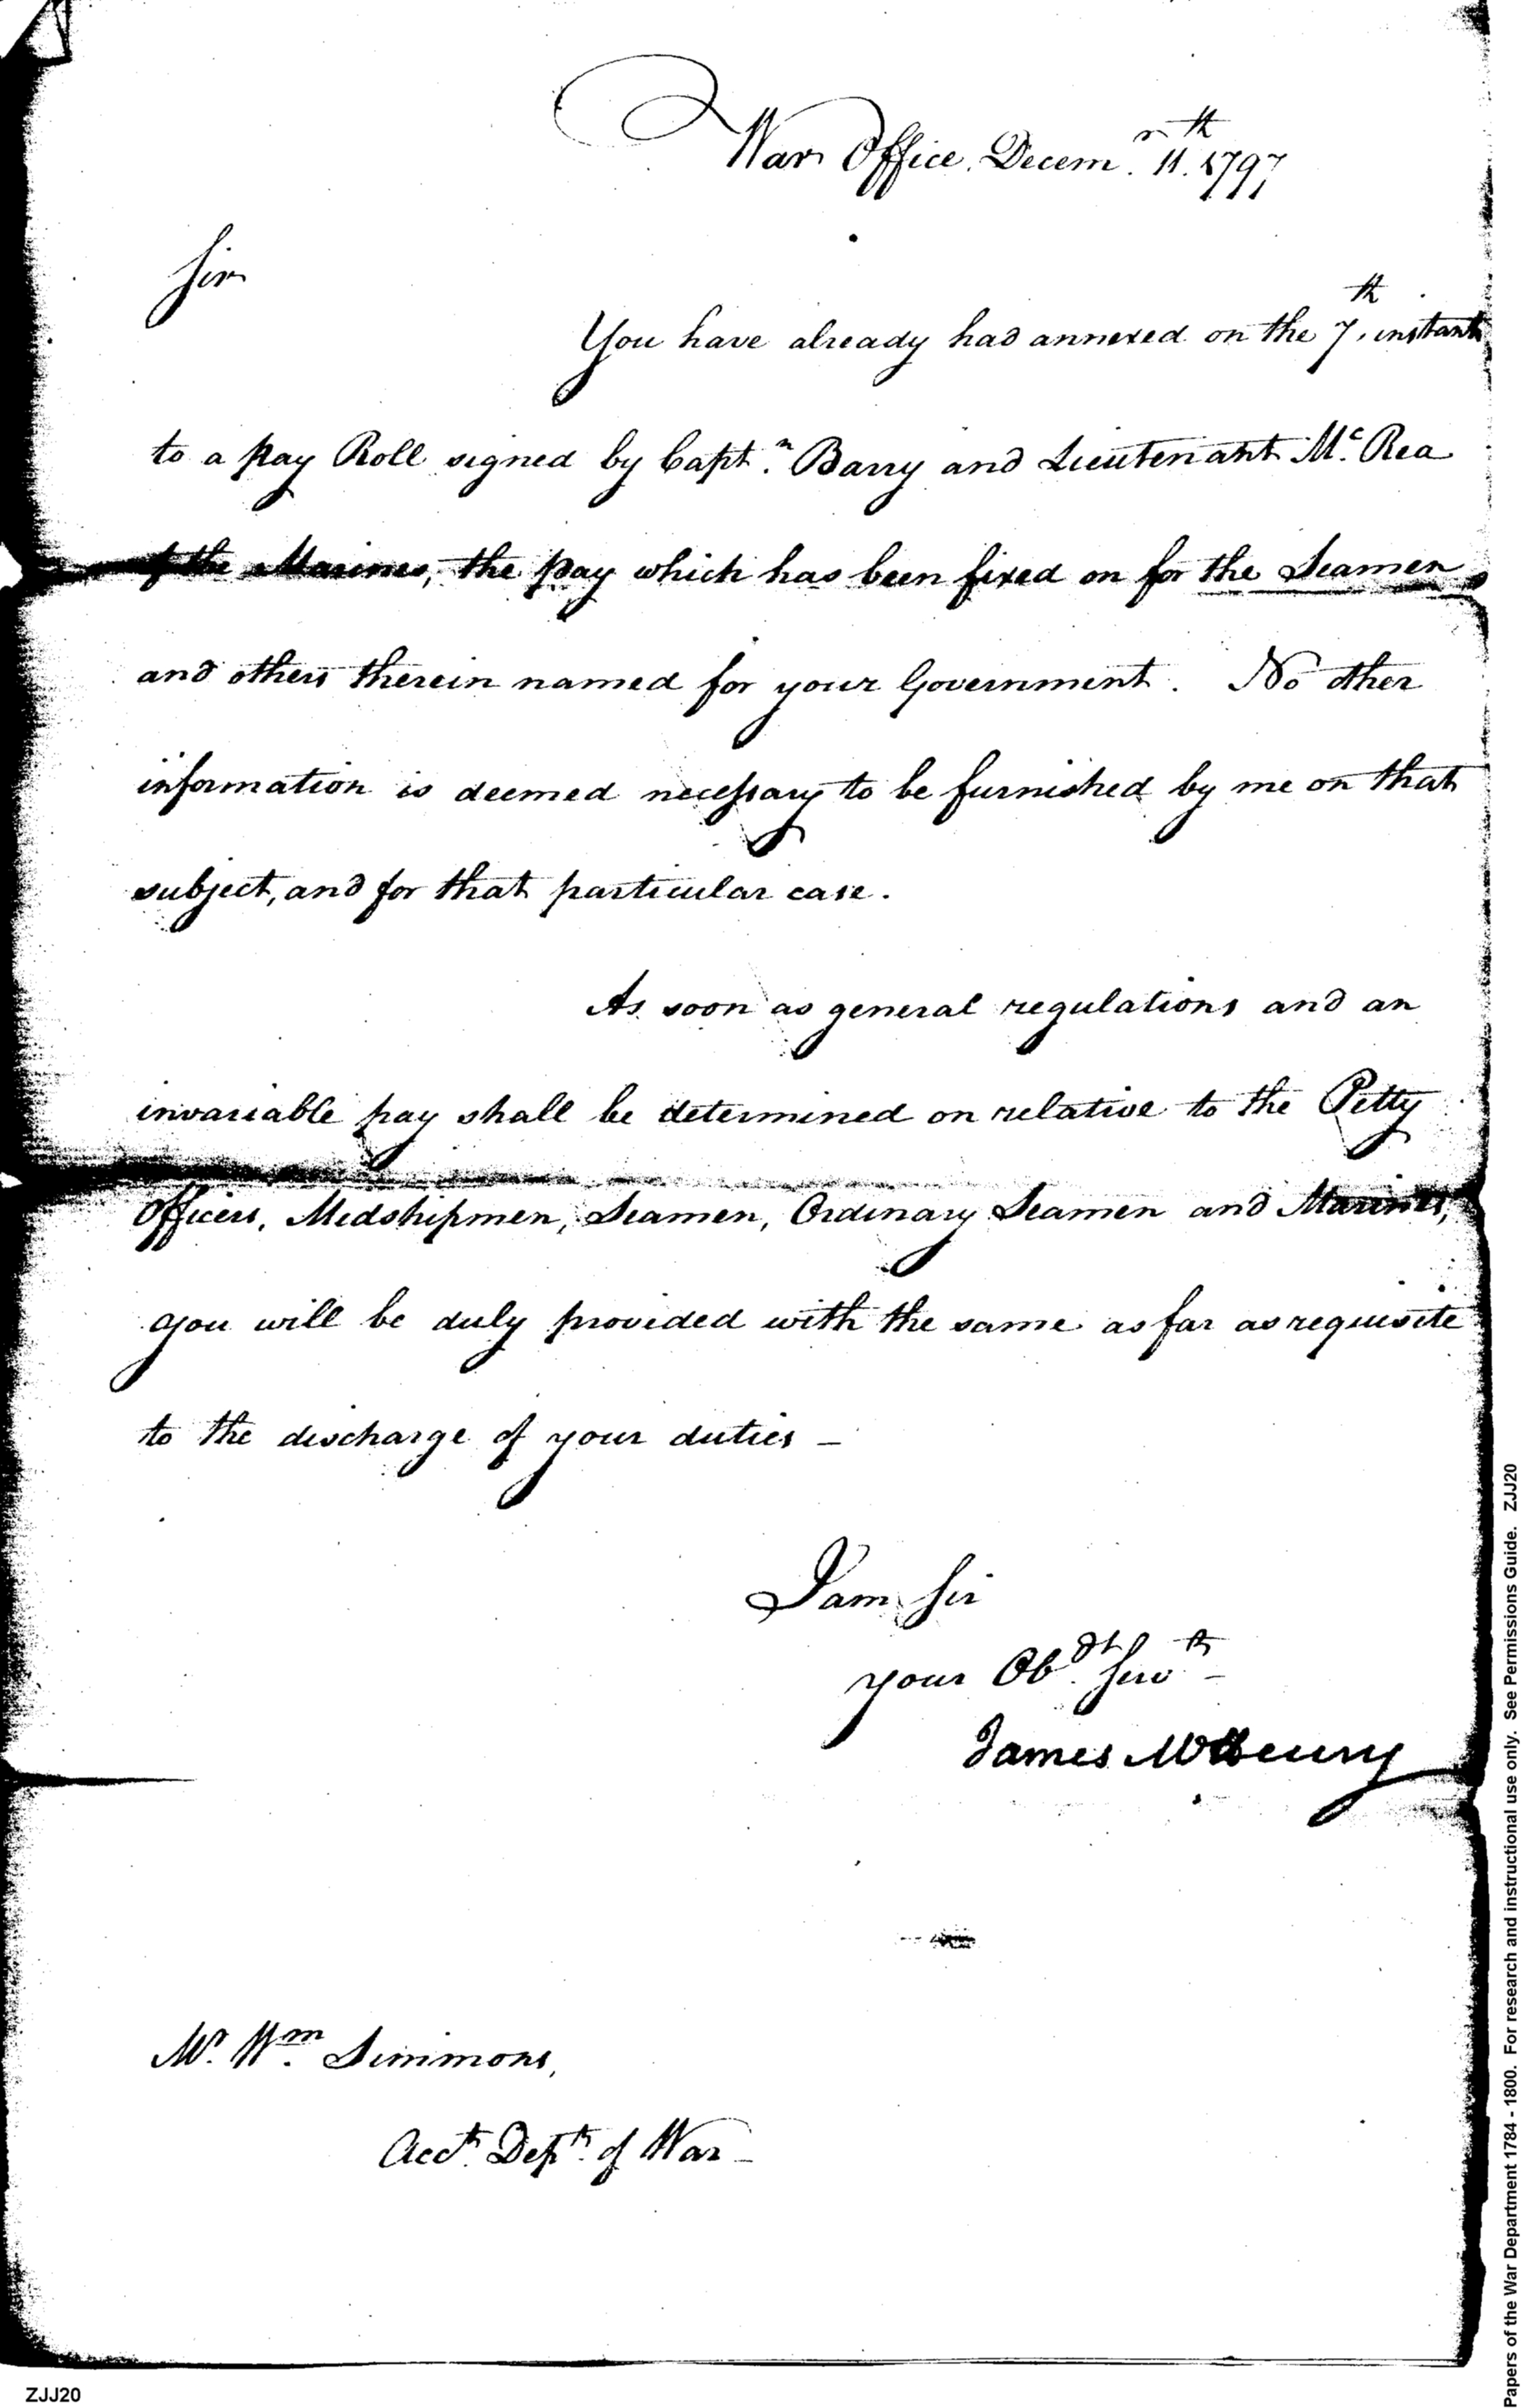 War Office. Decem.r 11.th 1797
Sir
You have already had annexed on the 7.th instant
to a pay Roll signed by Capt.n Barry and Lieutenant Mc. Rea
of the Marines, the pay which has been fixed on for the Seamen
and others therein named for your Government. No other
information is deemed necessary to be furnished by me on that
subject, and for that particular case.
As soon as general regulations and an
invariable pay shall be determined on relative to the Petty
Officers, Midshipmen, Seamen, Ordinary Seamen and Marines,
you will be duly provided with the same as far as requisite
to the discharge of your duties –
I am Sir
your Obdt. Servt. –
James McHenry
Mr. Wm. Simmons,
Acct. Dept. of War –
ZJJ20
Papers of the War Department 1784 - 1800. For research and instructional use only. See Permissions Guide. ZJJ20